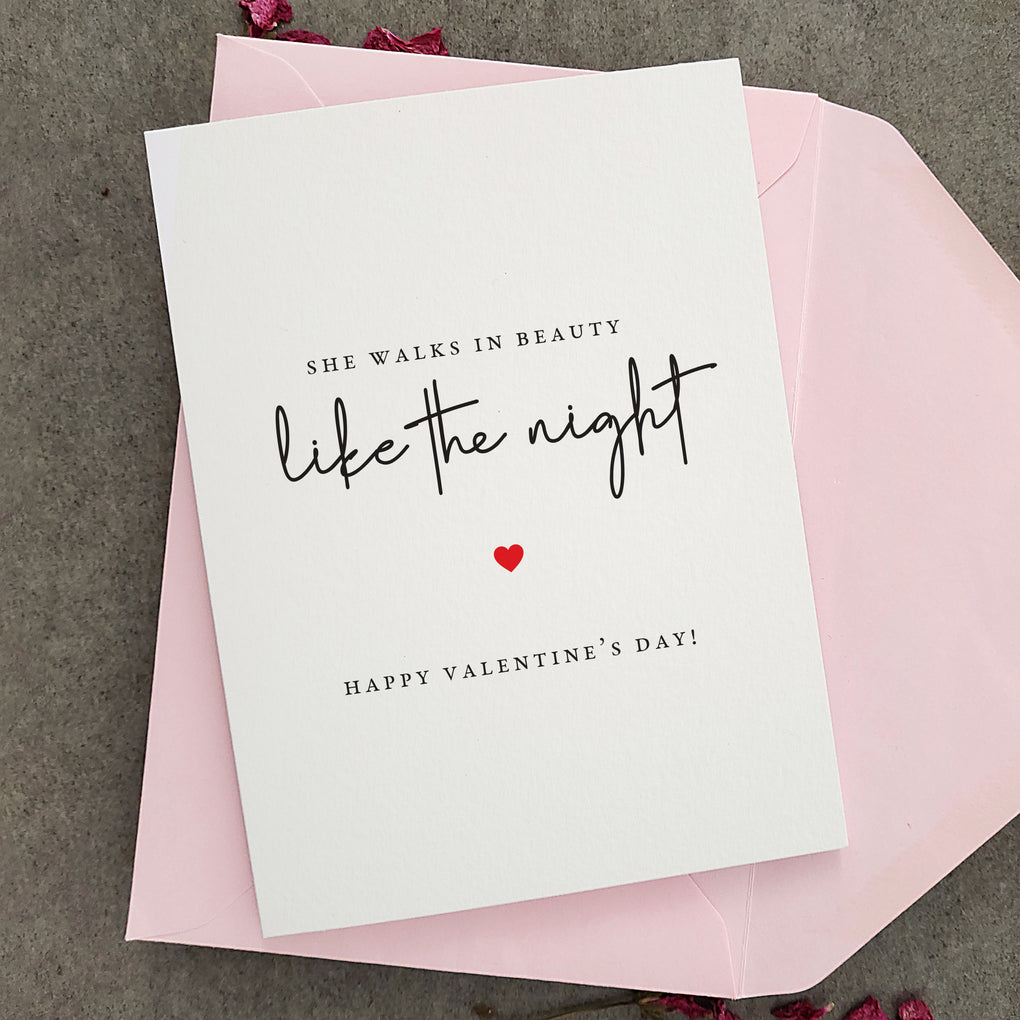 SHE WALKS IN BEAUTY
like the night
HAPPY VALENTINE'S DAY!